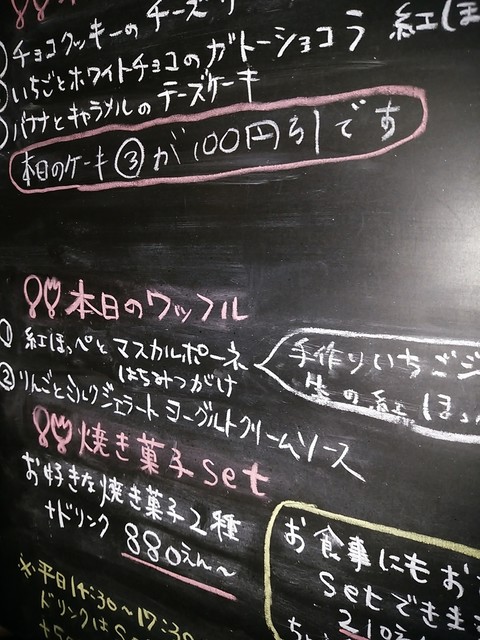 チョコクッキーのチーズ
紅ほ
いちごとホワイトチョコのガトーショコラ
バナナとキャラメルのチーズケーキ
本日のケーキ③が100円引です
本日のワッフル
① 紅ほっぺとマスカルポーネ
はちみつがけ
手作りいちごジ
生の紅ほっ
② りんごとミルクジェラート ヨーグルトクリームソース
焼き菓子set
お好きな焼き菓子2種
+ドリンク 880えん~
お食事にもお
setでき
210
※平日14:30~17:30
ドリンクは